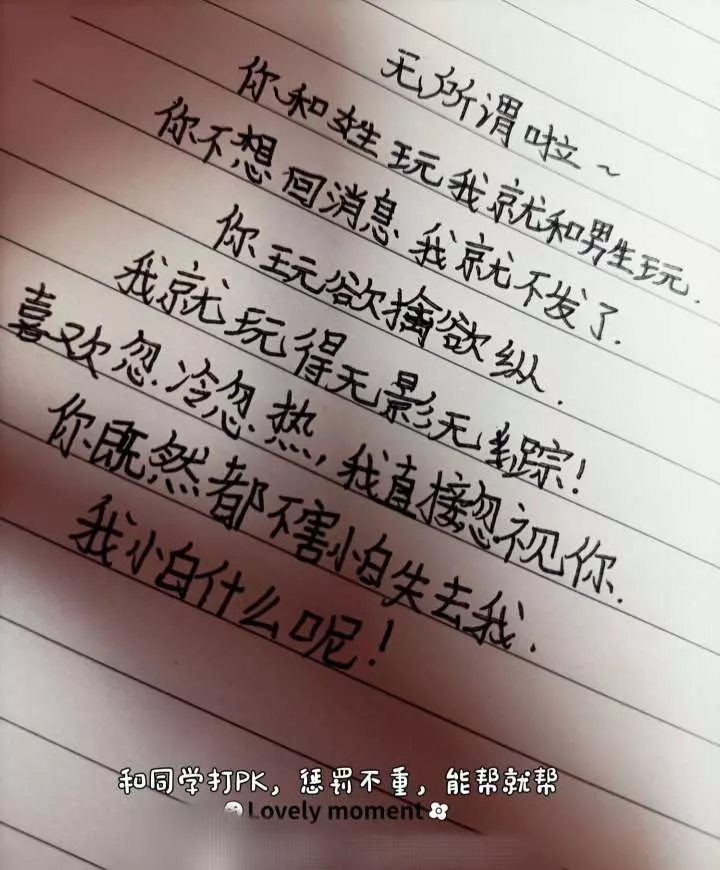 无所谓啦~
你和女生玩我就和男生玩.
你不想回消息我就不发了.
你玩欲擒欲纵.
我就玩得无影无踪!
喜欢忽冷忽热,我直接忽视你.
你既然都不害怕失去我.
我怕什么呢!
和同学打PK，惩罚不重，能帮就帮
Lovely moment